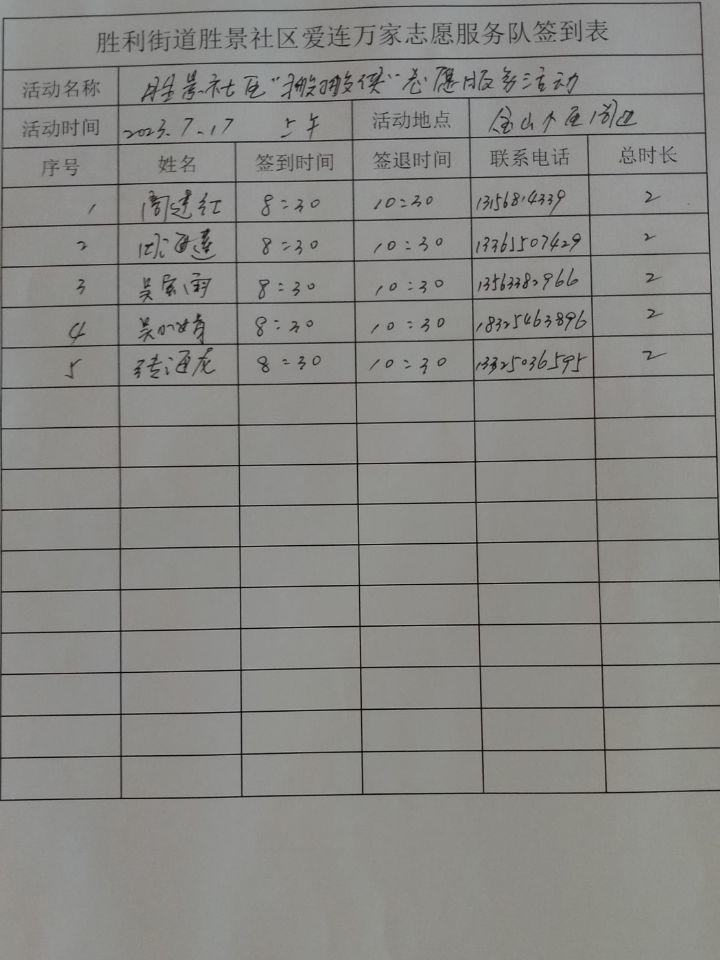 胜利街道胜景社区爱连万家志愿服务队签到表
活动名称 胜景社区“挪挪侠”志愿服务活动
活动时间 2023.7.17 上午 活动地点 金山小区周边
序号 姓名 签到时间 签退时间 联系电话 总时长
1 周建红 8:30 10:30 2
2 8:30 10:30 13361507429 2
3 吴 雨 8:30 10:30 13563382966 2
4 吴 婧 8:30 10:30 18325463896 2
5 海龙 8:30 10:30 13325036595 2